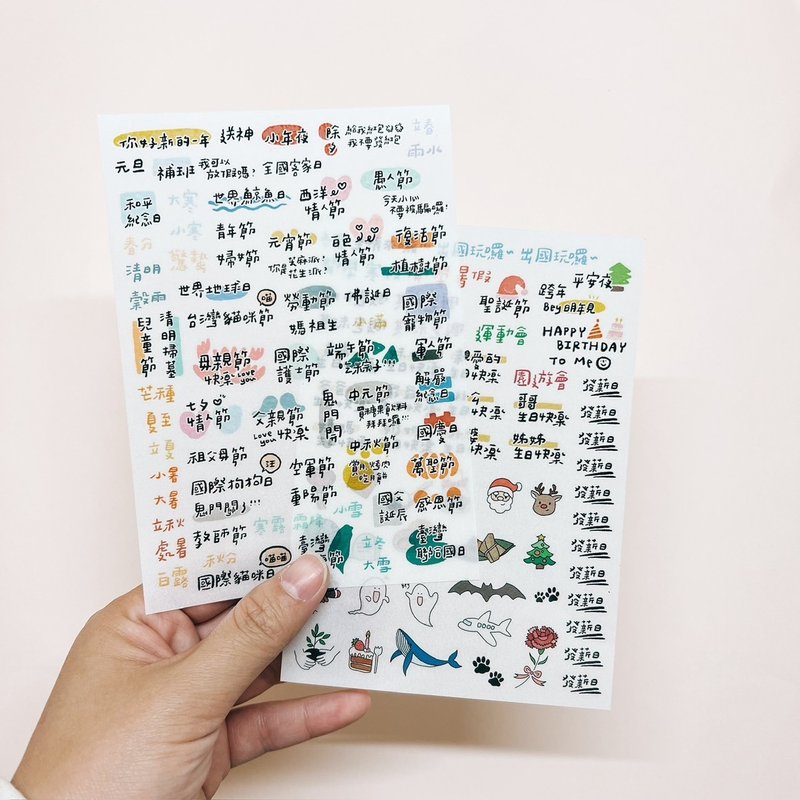 你好新的一年
送神
小年夜
除夕
給我紅包
我不要發紅包
立春
雨水
元旦
補班
我可以
放假嗎?
全國客家日
愚人節
今天小心
不要被騙囉!
和平
紀念日
大寒
世界鯨魚日
西洋
情人節
小寒
春分
驚蟄
青年節
元宵節
你是芝麻派?
花生派?
白色
情人節
復活節
植樹節
清明
婦女節
穀雨
世界地球日
喵
勞動節
佛誕日
國際
寵物節
兒童節
清明掃墓
台灣貓咪節
媽祖生
小滿
軍人節
母親節
快樂
Love you
國際
護士節
端午節
吃粽子!!!
解嚴
紀念日
芒種
夏至
七夕
情人節
父親節
Love you
快樂
鬼門開
中元節
買糖果飲料
拜拜囉!!!
國慶日
立夏
祖父母節
汪
空軍節
中秋節
賞月 烤肉
吃月餅
萬聖節
小暑
國際狗狗日
重陽節
國父
誕辰
感恩節
大暑
鬼門關了!!!
立秋
教師節
寒露
霜降
小雪
臺灣
節
臺灣
聖町國日
處暑
秋分
喵喵
立冬
大雪
白露
國際貓咪日
國玩囉~
出國玩囉~
暑假
平安夜
聖誕節
跨年
Bey 明年見
運動會
HAPPY
BIRTHDAY
TO Me
愛的
日快樂
園遊會
發薪日
哥哥
生日快樂
日快樂
發薪日
姊姊
生日快樂
日快樂
發薪日
發薪日
發薪日
發薪日
發薪日
發薪日
發薪日
發薪日
發薪日
發薪日